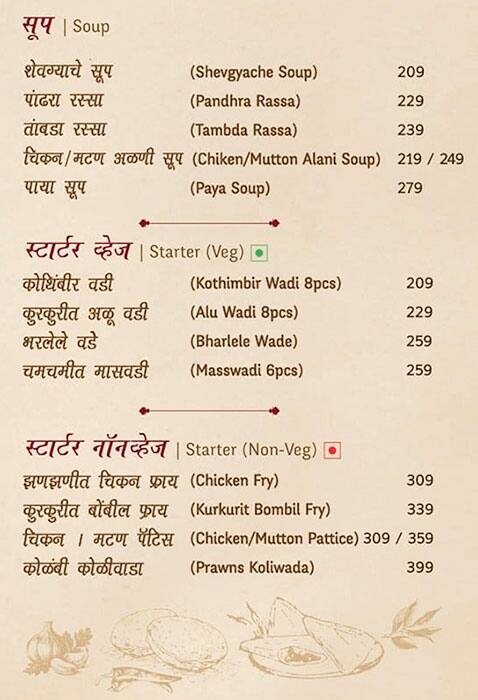 सूप | Soup
शेवग्याचे सूप (Shevgyache Soup) 209
पांढरा रस्सा (Pandhra Rassa) 229
तांबडा रस्सा (Tambda Rassa) 239
चिकन/मटण अळणी सूप (Chiken/Mutton Alani Soup) 219 / 249
पाया सूप (Paya Soup) 279
स्टार्टर व्हेज | Starter (Veg)
कोथिंबीर वडी (Kothimbir Wadi 8pcs) 209
कुरकुरीत अळू वडी (Alu Wadi 8pcs) 229
भरलेले वडे (Bharlele Wade) 259
चमचमीत मासवडी (Masswadi 6pcs) 259
स्टार्टर नॉनव्हेज | Starter (Non-Veg)
झणझणीत चिकन फ्राय (Chicken Fry) 309
कुरकुरीत बोंबील फ्राय (Kurkurit Bombil Fry) 339
चिकन / मटण पॅटिस (Chicken/Mutton Pattice) 309 / 359
कोळंबी कोळीवाडा (Prawns Koliwada) 399